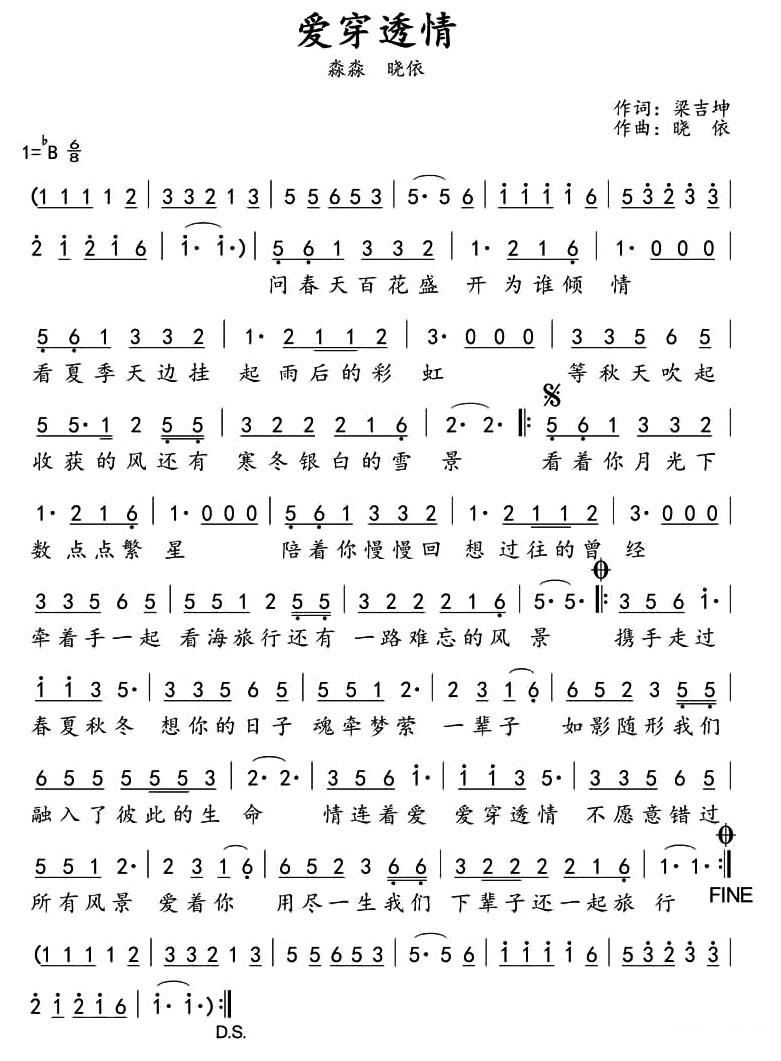 爱穿透情
淼淼 晓依
作词：梁吉坤
作曲：晓 依
1=♭B 6/8
(1 1 1 1 2 | 3 3 2 1 3 | 5 5 6 5 3 | 5· 5 6 | i i i i 6 | 5 3 2 3 3 |
2 i 2 i 6 | i· i·) | 5 6 1 3 3 2 | 1· 2 1 6 | 1· 0 0 0 |
问春天百花盛 开为谁倾 情
5 6 1 3 3 2 | 1· 2 1 1 2 | 3· 0 0 0 | 3 3 5 6 5 |
看夏季天边挂 起雨后的彩 虹 等秋天吹起
5 5· 1 2 5 5 | 3 2 2 2 1 6 | 2· 2· ‖: 5 6 1 3 3 2 |
收获的风还有 寒冬银白的雪 景 看着你月光下
1· 2 1 6 | 1· 0 0 0 | 5 6 1 3 3 2 | 1· 2 1 1 2 | 3· 0 0 0 |
数点点繁 星 陪着你慢慢回 想过往的曾 经
3 3 5 6 5 | 5 5 1 2 5 5 | 3 2 2 2 1 6 | 5· 5· ‖: 3 5 6 i· |
牵着手一起 看海旅行还有 一路难忘的风 景 携手走过
i i 3 5· | 3 3 5 6 5 | 5 5 1 2· | 2 3 1 6 | 6 5 2 3 5 5 |
春夏秋冬 想你的日子 魂牵梦萦 一辈子 如影随形我们
6 5 5 5 5 3 | 2· 2· | 3 5 6 i· | i i 3 5· | 3 3 5 6 5 |
融入了彼此的生 命 情连着爱 爱穿透情 不愿意错过
5 5 1 2· | 2 3 1 6 | 6 5 2 3 6 6 | 3 2 2 2 1 6 | 1· 1· :‖
所有风景 爱着你 用尽一生我们 下辈子还一起旅 行 FINE
(1 1 1 1 2 | 3 3 2 1 3 | 5 5 6 5 3 | 5· 5 6 | i i i i 6 | 5 3 2 3 3 |
2 i 2 i 6 | i· i·) :‖
D.S.